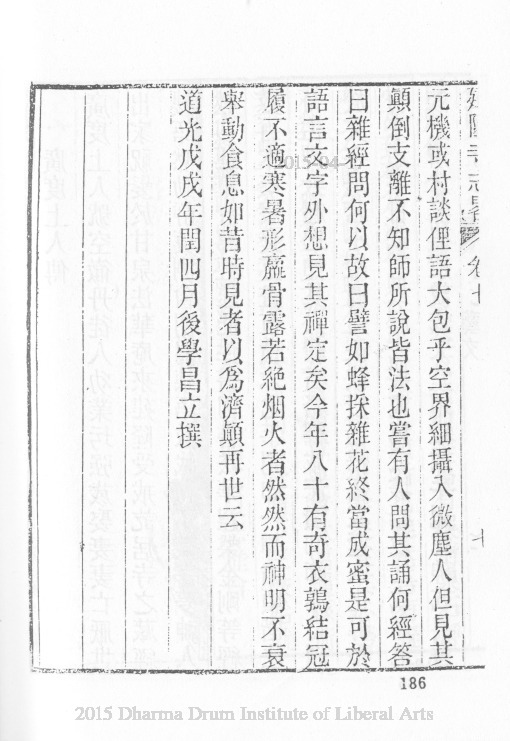 元機或村談俚語大包乎空界細攝入微塵人但見其
顛倒支離不知師所說皆法也嘗有人問其誦何經答
曰雜經問何以故曰譬如蜂採雜花終當成蜜是可於
語言文字外想見其禪定矣今年八十有奇衣鶉結冠
履不適寒暑形羸骨露若絶烟火者然然而神明不衰
舉動食息如昔時見者以爲濟顚再世云
道光戊戌年閏四月後學昌立撰
寺志畧 卷十
十
186
2015 Dharma Drum Institute of Liberal Arts